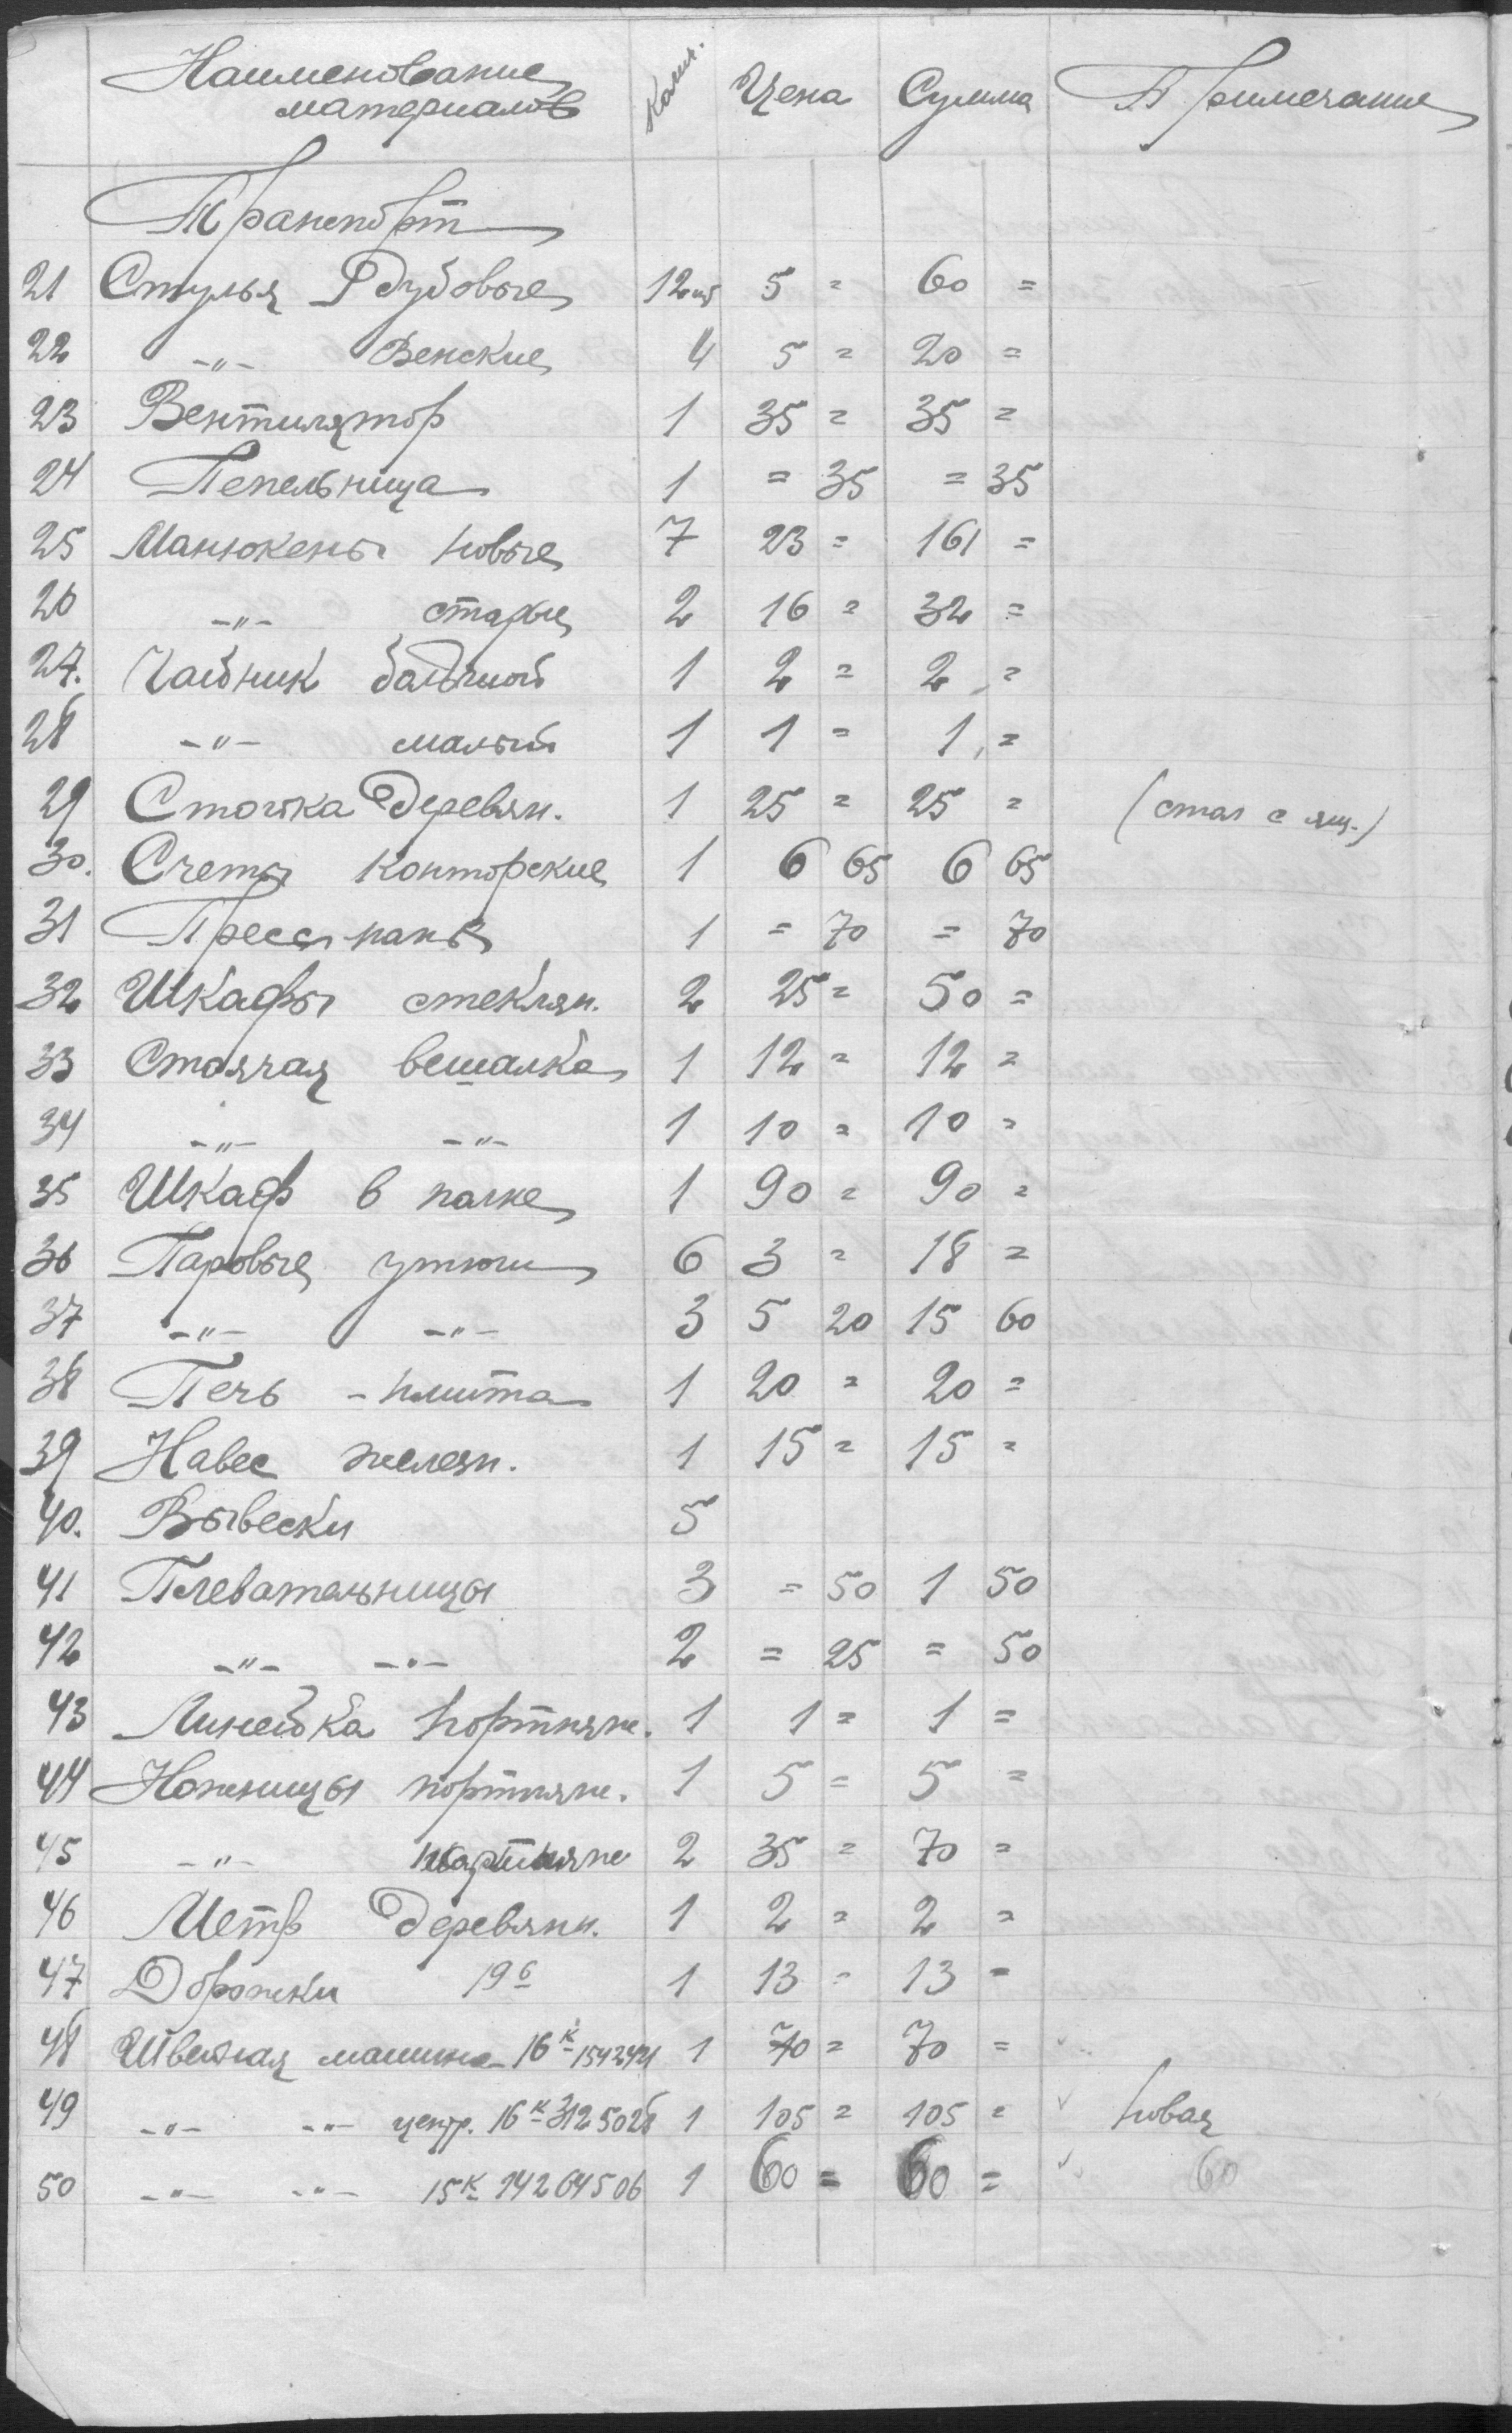 Наименование материалов Колич. Цена Сумма Примечание
Транспорт
21 Стулья дубовые 12 шт 5 = 60 =
22 -"- Венские 4 5 = 20 =
23 Вентилятор 1 35 = 35 =
24 Пепельница 1 = 35 = 35
25 Манюкены новые 7 23 = 161 =
26 -"- старые 2 16 = 32 =
27. Чайник большой 1 2 = 2 =
28 -"- малый 1 1 = 1 =
29 Стойка деревян. 1 25 = 25 = (стол с ящ.)
30. Счеты конторские 1 6 65 6 65
31 Пресс-папье 1 = 70 = 70
32 Шкафы стеклян. 2 25 = 50 =
33 Стоячая вешалка 1 12 = 12 =
34 -"- -"- 1 10 = 10 =
35 Шкаф в 1 90 = 90 =
36 Паровые утюги 6 3 = 18 =
37 -"- -"- 3 5 20 15 60
38 Печь - плита 1 20 = 20 =
39 Навес железн. 1 15 = 15 =
40. Вывески 5
41 Плевательницы 3 = 50 1 50
42 -"- -"- 2 = 25 = 50
43 Линейка портнян. 1 1 = 1 =
44 Ножницы портнян. 1 5 = 5 =
45 -"- портнян 2 35 = 70 =
46 Метр деревянн. 1 2 = 2 =
47 Дорожки 19 б 1 13 = 13 =
48 Швейная машина 16 к 1542421 1 70 = 70 =
49 -"- -"- центр. 16 к 3125028 1 105 = 105 = новая
50 -"- -"- 15 к 14264506 1 60 = 60 = 60